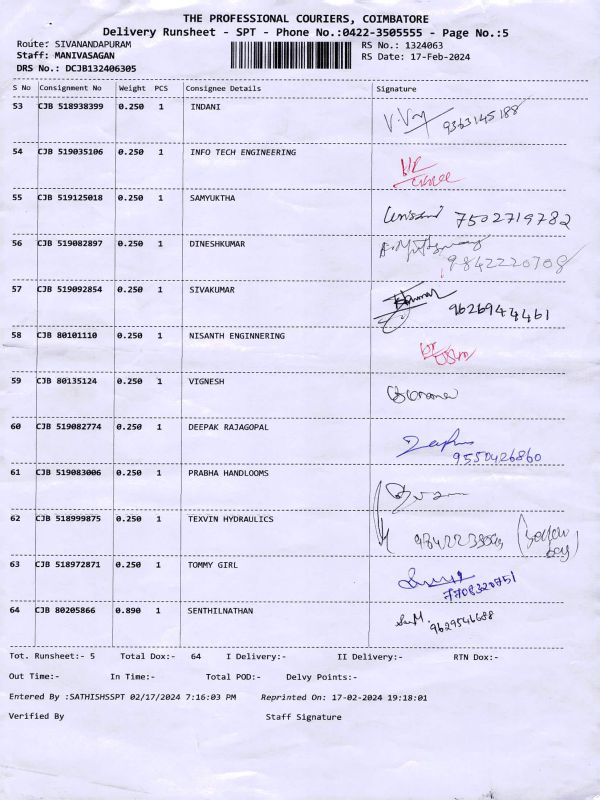 THE PROFESSIONAL COURIERS, COIMBATORE
Delivery Runsheet - SPT - Phone No.:0422-3505555 - Page No.:5
Route: SIVANANDAPURAM RS No.: 1324063
Staff: MANIVASAGAN RS Date: 17-Feb-2024
DRS No.: DCJB132406305
S No Consignment No Weight PCS Consignee Details Signature
53 CJB 518938399 0.250 1 INDANI 9363145188
54 CJB 519035106 0.250 1 INFO TECH ENGINEERING
55 CJB 519125018 0.250 1 SAMYUKTHA 7502719782
56 CJB 519082897 0.250 1 DINESHKUMAR
9842220708
57 CJB 519092854 0.250 1 SIVAKUMAR 9626944461
58 CJB 80101110 0.250 1 NISANTH ENGINNERING
59 CJB 80135124 0.250 1 VIGNESH
60 CJB 519082774 0.250 1 DEEPAK RAJAGOPAL
9550426860
61 CJB 519083006 0.250 1 PRABHA HANDLOOMS
62 CJB 518999875 0.250 1 TEXVIN HYDRAULICS
63 CJB 518972871 0.250 1 TOMMY GIRL
7708320751
64 CJB 80205866 0.890 1 SENTHILNATHAN 9629546688
Tot. Runsheet:- 5 Total Dox:- 64 I Delivery:- II Delivery:- RTN Dox:-
Out Time:- In Time:- Total POD:- Delvy Points:-
Entered By :SATHISHSSPT 02/17/2024 7:16:03 PM Reprinted On: 17-02-2024 19:18:01
Verified By Staff Signature